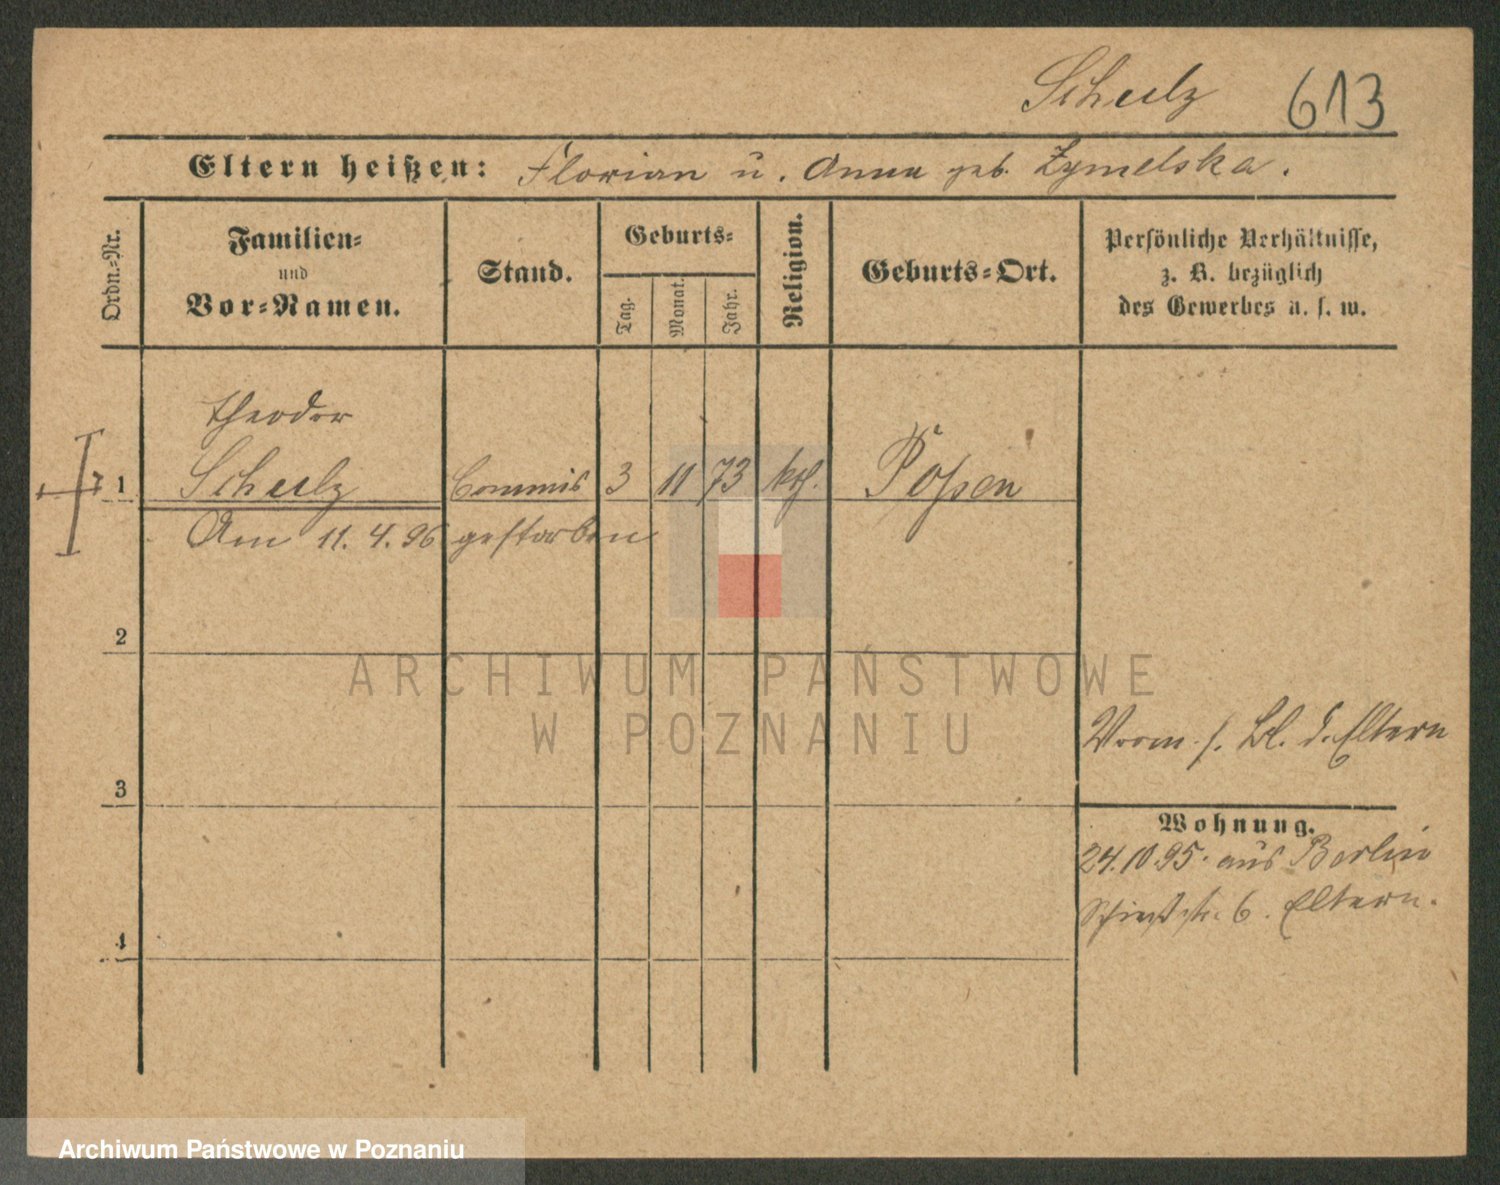 Schulz 613
Eltern heißen: Florian u. Anna geb. Zymelska.
Ordn.-Nr.
Familien-
und
Vor-Namen.
Stand.
Geburts-
Tag.
Monat.
Jahr.
Religion.
Geburts-Ort.
Persönliche Verhältnisse,
z. B. bezüglich
des Gewerbes u. s. w.
Theodor
1 Schulz Commis 3 11 73 kth. Posen
Am 11.4.96 gestorben
2
ARCHIWUM PAŃSTWOWE
W POZNANIU
Vorm. s. Bl. d. Eltern
3
Wohnung.
24.10.95. aus Berlin
6. Eltern.
4
Archiwum Państwowe w Poznaniu